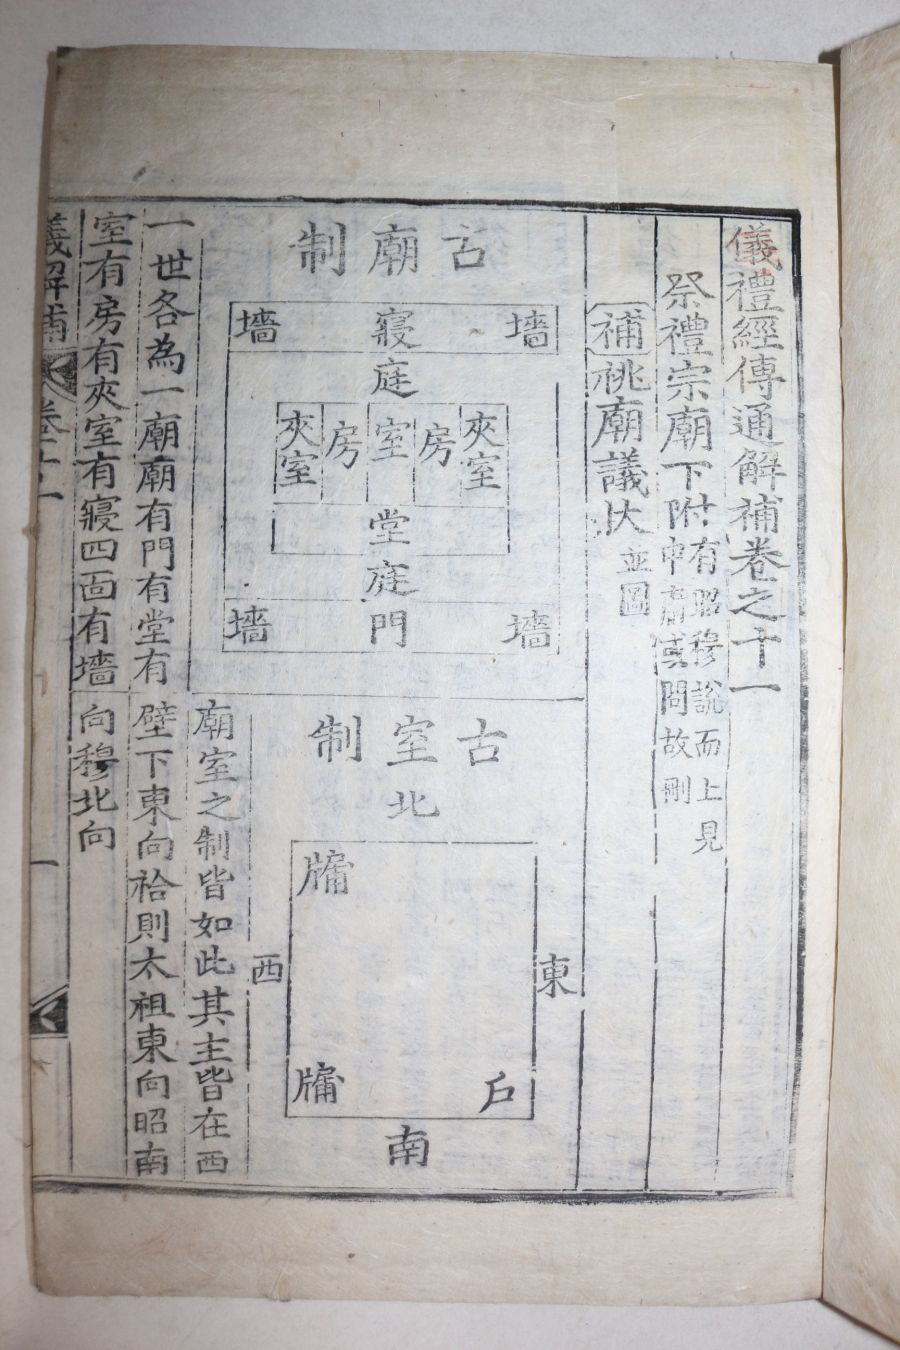 儀禮經傳通解補卷之十一
祭禮宗廟下附
有昭穆說而上見
中庸或問故刪
補 祧廟議狀 並圖
古廟制
墻 寢 墻
庭
夾室 房 室 房 夾室
堂
庭
墻 門 墻
一世各為一廟廟有門有堂有
室有房有夾室有寢四面有墻
古室制
北
牖
西 東
牖 戶
南
廟室之制皆如此其主皆在西
壁下東向祫則太祖東向昭南
向穆北向
儀解補 卷十一
一